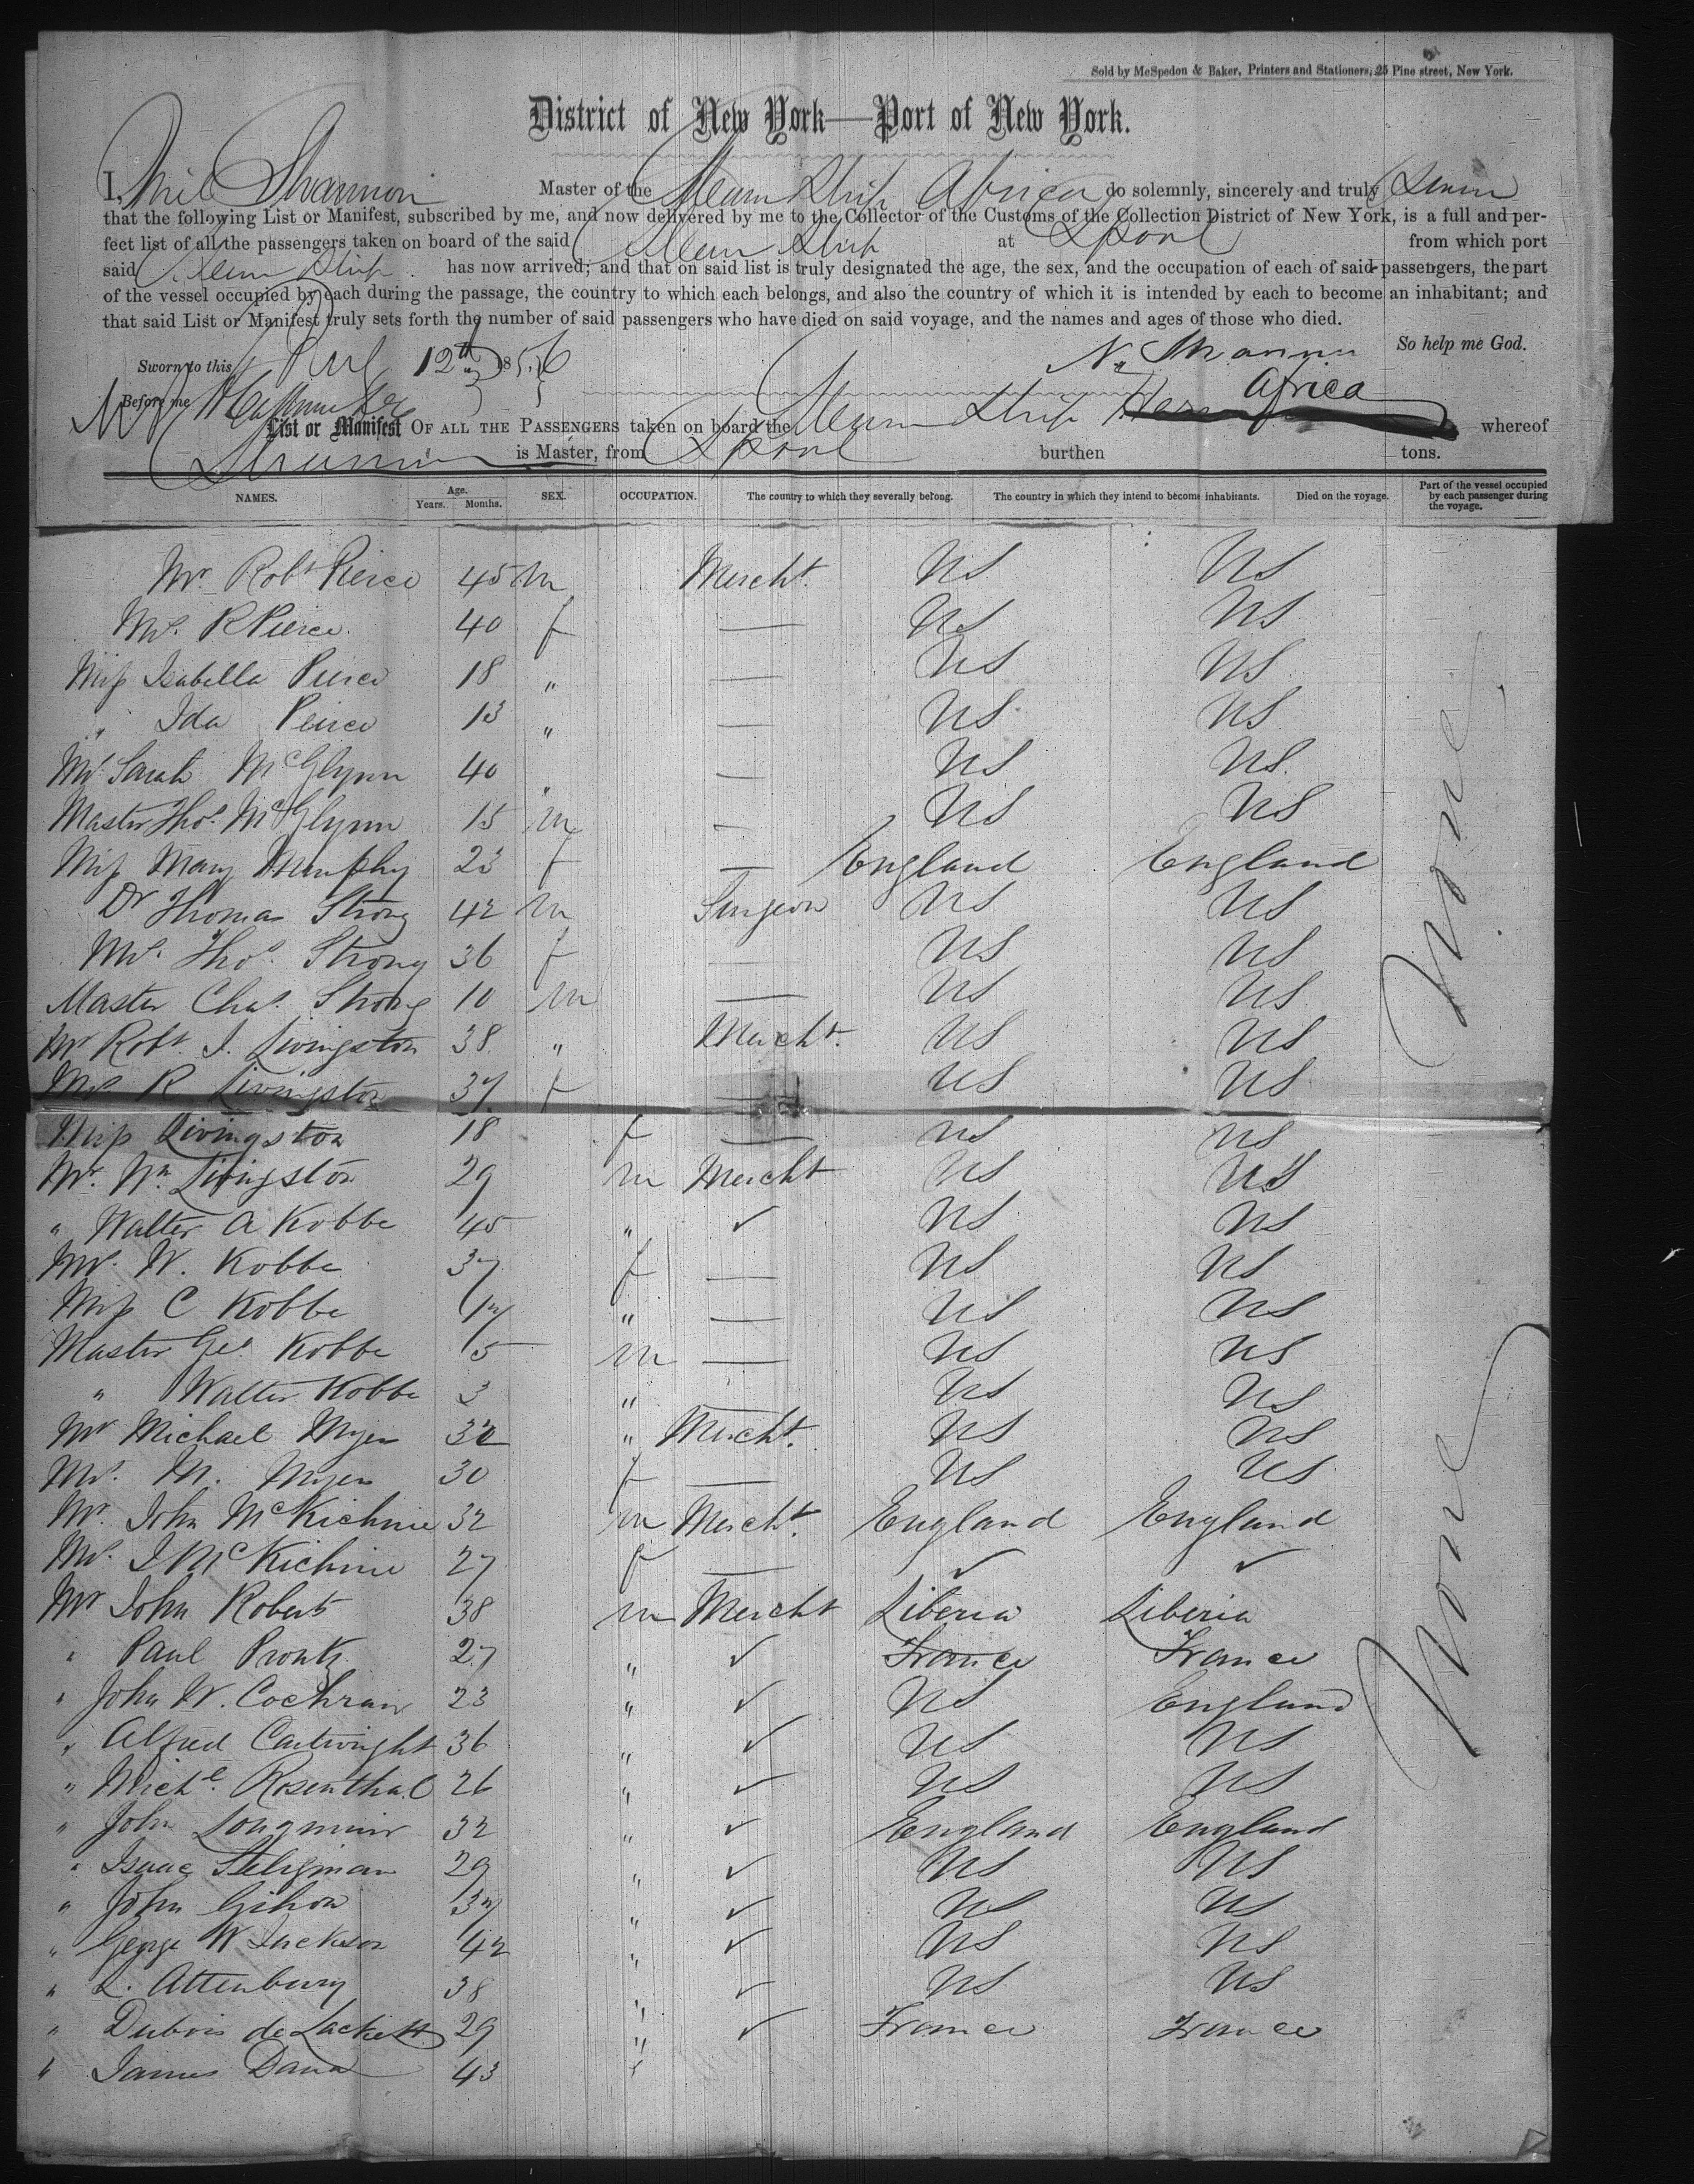 Sold by McSpedon & Baker, Printers and Stationers, 25 Pine street, New York.
District of New York—Port of New York.
I, Neil Shannon Master of the Steam Ship Africa do solemnly, sincerely and truly Swear
that the following List or Manifest, subscribed by me, and now delivered by me to the Collector of the Customs of the Collection District of New York, is a full and per-
fect list of all the passengers taken on board of the said Steam Ship at Lpool from which port
said Steam Ship has now arrived; and that on said list is truly designated the age, the sex, and the occupation of each of said passengers, the part
of the vessel occupied by each during the passage, the country to which each belongs, and also the country of which it is intended by each to become an inhabitant; and
that said List or Manifest truly sets forth the number of said passengers who have died on said voyage, and the names and ages of those who died.
So help me God.
Sworn to this 12th 1856 N. Shannon
Before me
Africa
List or Manifest OF ALL THE PASSENGERS taken on board the Steam Ship whereof
Shannon is Master, from Lpool burthen tons.
NAMES. Age. Years. Months. SEX. OCCUPATION. The country to which they severally belong. The country in which they intend to become inhabitants. Died on the voyage. Part of the vessel occupied by each passenger during the voyage.
Mr Robt Pierce 45 m Mercht. US US
Mrs. R Pierce 40 f — US US
Miss Isabella Pierce 18 " — US US
" Ida Peirce 13 " — US US
Mrs Sarah McGlynn 40 " — US US
Master Thos. McGlynn 15 m — US US
Miss Mary Murphy 23 f — England England
Dr Thomas Strong 42 m Surgeon US US
Mrs. Thos. Strong 36 f — US US
Master Chas. Strong 10 m — US US
Mr Robt. J. Livingston 38 " Mercht. US US
Mrs R Livingston 37 f — US US
Miss Livingston 18 f — US US
Mr. Wm Livingston 29 m Mercht US US
" Walter A Kobbe 45 " ✓ US US
Mrs. W. Kobbe 37 f — US US
Miss C Kobbe 17 " — US US
Master Geo Kobbe 5 m — US US
" Walter Kobbe 3 " — US US
Mr Michael Myers 32 " Mercht. US US
Mrs. M. Myers 30 f — US US
Mr. John McKichnie 32 m Mercht. England England
Mrs. J McKichnie 27 f — ✓ ✓
Mr John Roberts 38 m Mercht Liberia Liberia
" Paul 27 " ✓ France France
" John W. Cochran 23 " ✓ US England
" Alfred Cartwright 36 " ✓ US US
" Michl. Rosenthal 26 " ✓ US US
" John Longmuir 32 " ✓ England England
" Isaac Seligman 29 " ✓ US US
" John Gihon 37 " ✓ US US
" George W Jackson 42 " ✓ US US
" L. Attenbury 38 " ✓ US US
" Dubois de 29 " ✓ France France
" James Dana 43 "
None
None